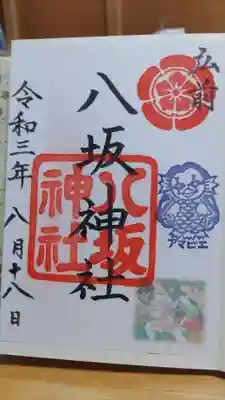 弘前
八坂神社
八坂神社
アマビエ
令和三年八月十八日